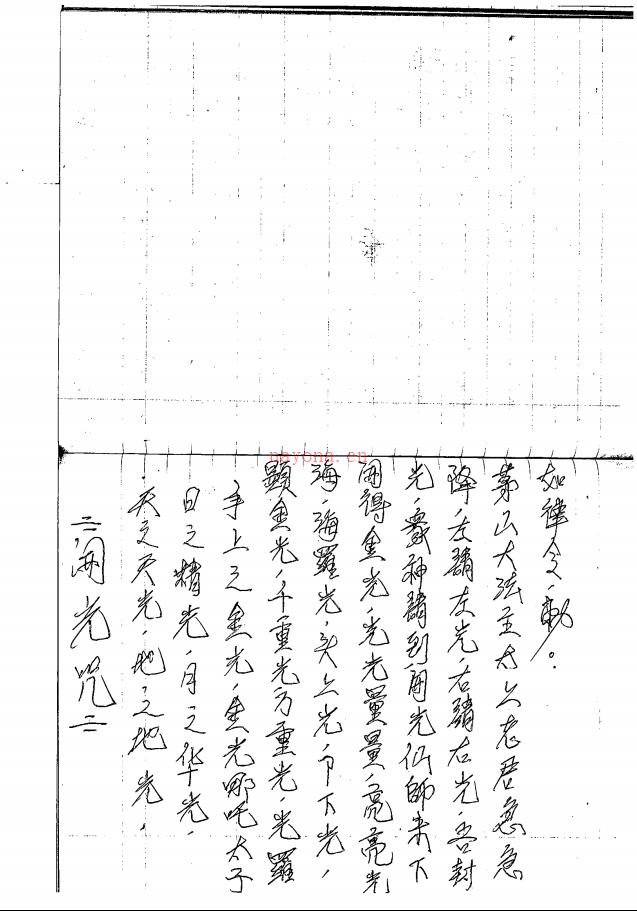 =開光咒=
天之天光，地之地光，
日之精光，月之华光，
手上之金光，金光哪吒太子
顯金光，千重光万重光，光羅
海，海羅光，头上光，下光，
開得金光，光光量量，亮亮光
光，眾神請到開光仙師来下
降，左請左光，右請右光，吾封
茅山大法主太上老君急急
如律令，勅。
nayona.cn